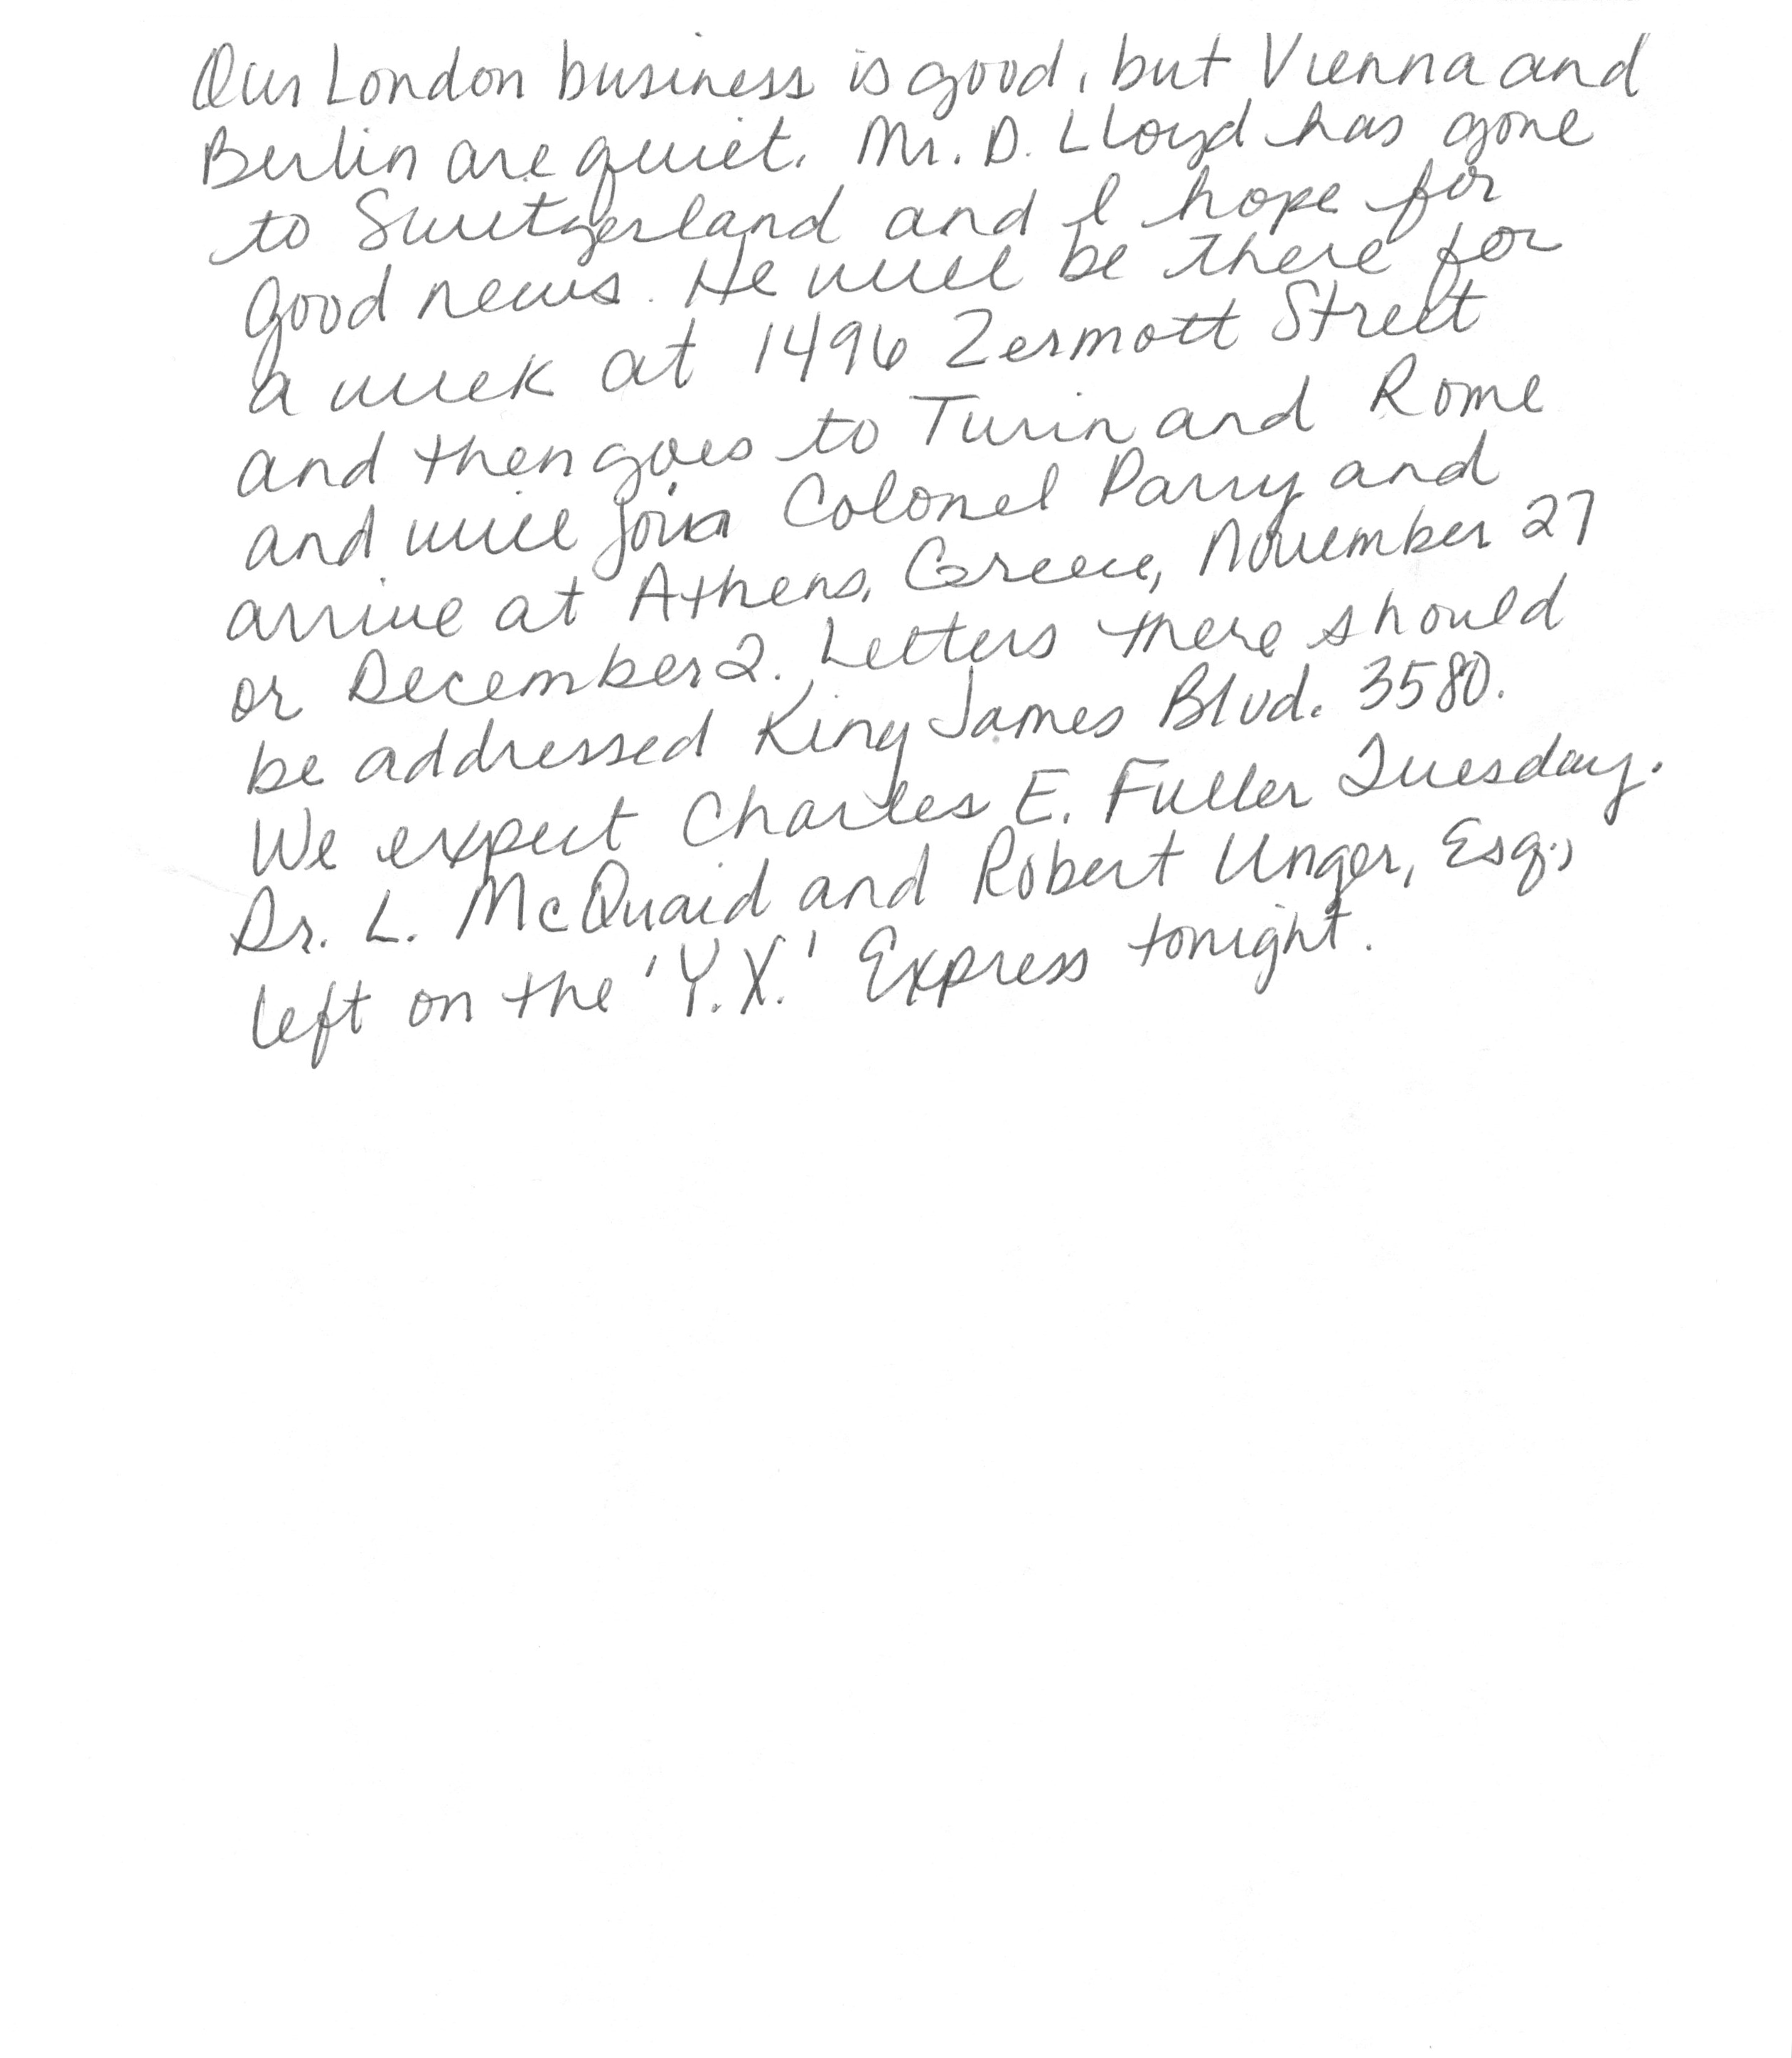 Our London business is good, but Vienna and
Berlin are quiet. Mr. D. Lloyd has gone
to Switzerland and I hope for
good news. He will be there for
a week at 1496 Zermott Street
and then goes to Turin and Rome
and will join Colonel Parry and
arrive at Athens, Greece, November 27
or December 2. Letters there should
be addressed King James Blvd. 3580.
We expect Charles E. Fuller Tuesday.
Dr. L. McQuaid and Robert Unger, Esq.,
left on the 'Y.X.' Express tonight.